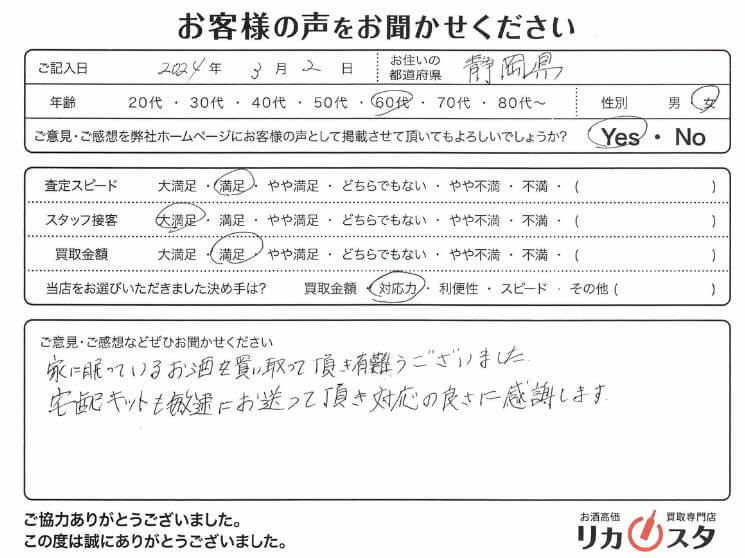 お客様の声をお聞かせください
ご記入日 2024 年 3 月 2 日 お住いの都道府県 静岡県
年齢 20代 ・ 30代 ・ 40代 ・ 50代 ・ 60代 ・ 70代 ・ 80代～ 性別 男 ・ 女
ご意見・ご感想を弊社ホームページにお客様の声として掲載させて頂いてもよろしいでしょうか？ Yes ・ No
査定スピード 大満足 ・ 満足 ・ やや満足 ・ どちらでもない ・ やや不満 ・ 不満 ・ ( )
スタッフ接客 大満足 ・ 満足 ・ やや満足 ・ どちらでもない ・ やや不満 ・ 不満 ・ ( )
買取金額 大満足 ・ 満足 ・ やや満足 ・ どちらでもない ・ やや不満 ・ 不満 ・ ( )
当店をお選びいただきました決め手は？ 買取金額 ・ 対応力 ・ 利便性 ・ スピード ・ その他 ( )
ご意見・ご感想などぜひお聞かせください
家に眠っているお酒を買い取って頂き有難うございました.
宅配キットも敏速にお送って頂き対応の良さに感謝します.
ご協力ありがとうございました。
この度は誠にありがとうございました。
お酒高価 買取専門店
リカスタ